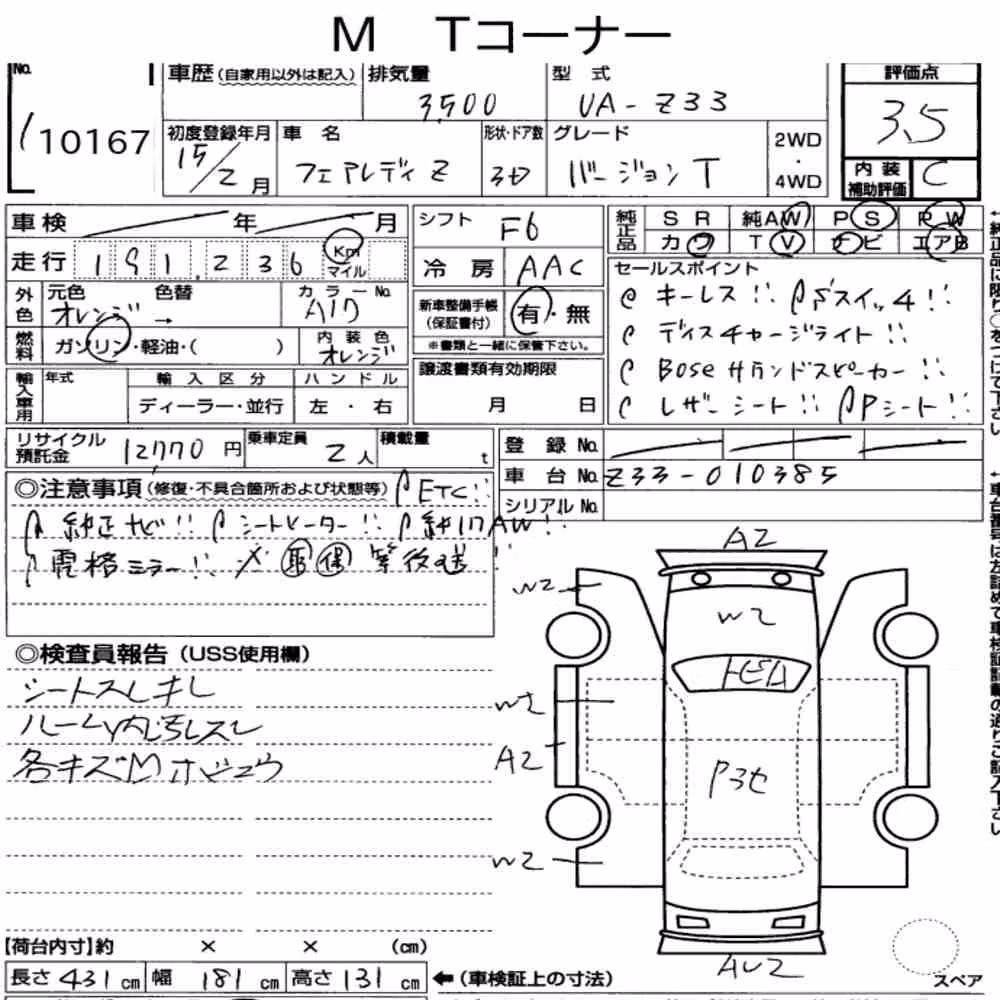 M Tコーナー
No. 110167
車歴(自家用以外は記入) 排気量 3,500 型式 UA-Z33 評価点 3.5
初度登録年月 15/2月 車名 フェアレディZ 形状・ドア数 3D グレード バージョンT 2WD・4WD
内装補助評価 C
車検 年 月 シフト F6
純正品 SR 純AW PS PW
カワ TV ナビ エアB
走行 191,236 Km マイル 冷房 AAC
外色 元色 オレンジ → 色替 カラーNo.
新車整備手帳(保証書付) 有・無
※書類と一緒に保管下さい。
燃料 ガソリン・軽油・( ) 内装色 オレンジ
セールスポイント
キーレス!! Pスイッチ!!
ディスチャージライト!!
BOSEサウンドスピーカー!!
レザーシート!! Pシート!!
輸入車用 年式 輸入区分 ディーラー・並行 ハンドル 左・右
譲渡書類有効期限 月 日
リサイクル預託金 12,770円 乗車定員 2人 積載量 t
登録No.
車台No. Z33-010385
シリアルNo.
◎注意事項(修復・不具合箇所および状態等) ETC!!
純正ナビ!! シートヒーター!! 純17AW!!
電格ミラー!! 取 保 等後送!!
◎検査員報告(USS使用欄)
シートスレキレ
ルーム内汚レスレ
各キズ
A2
W2
W2
W2
A2
W2
AU2
スペア
【荷台内寸】約 × × (cm)
長さ 431 cm 幅 181 cm 高さ 131 cm ←(車検証上の寸法)